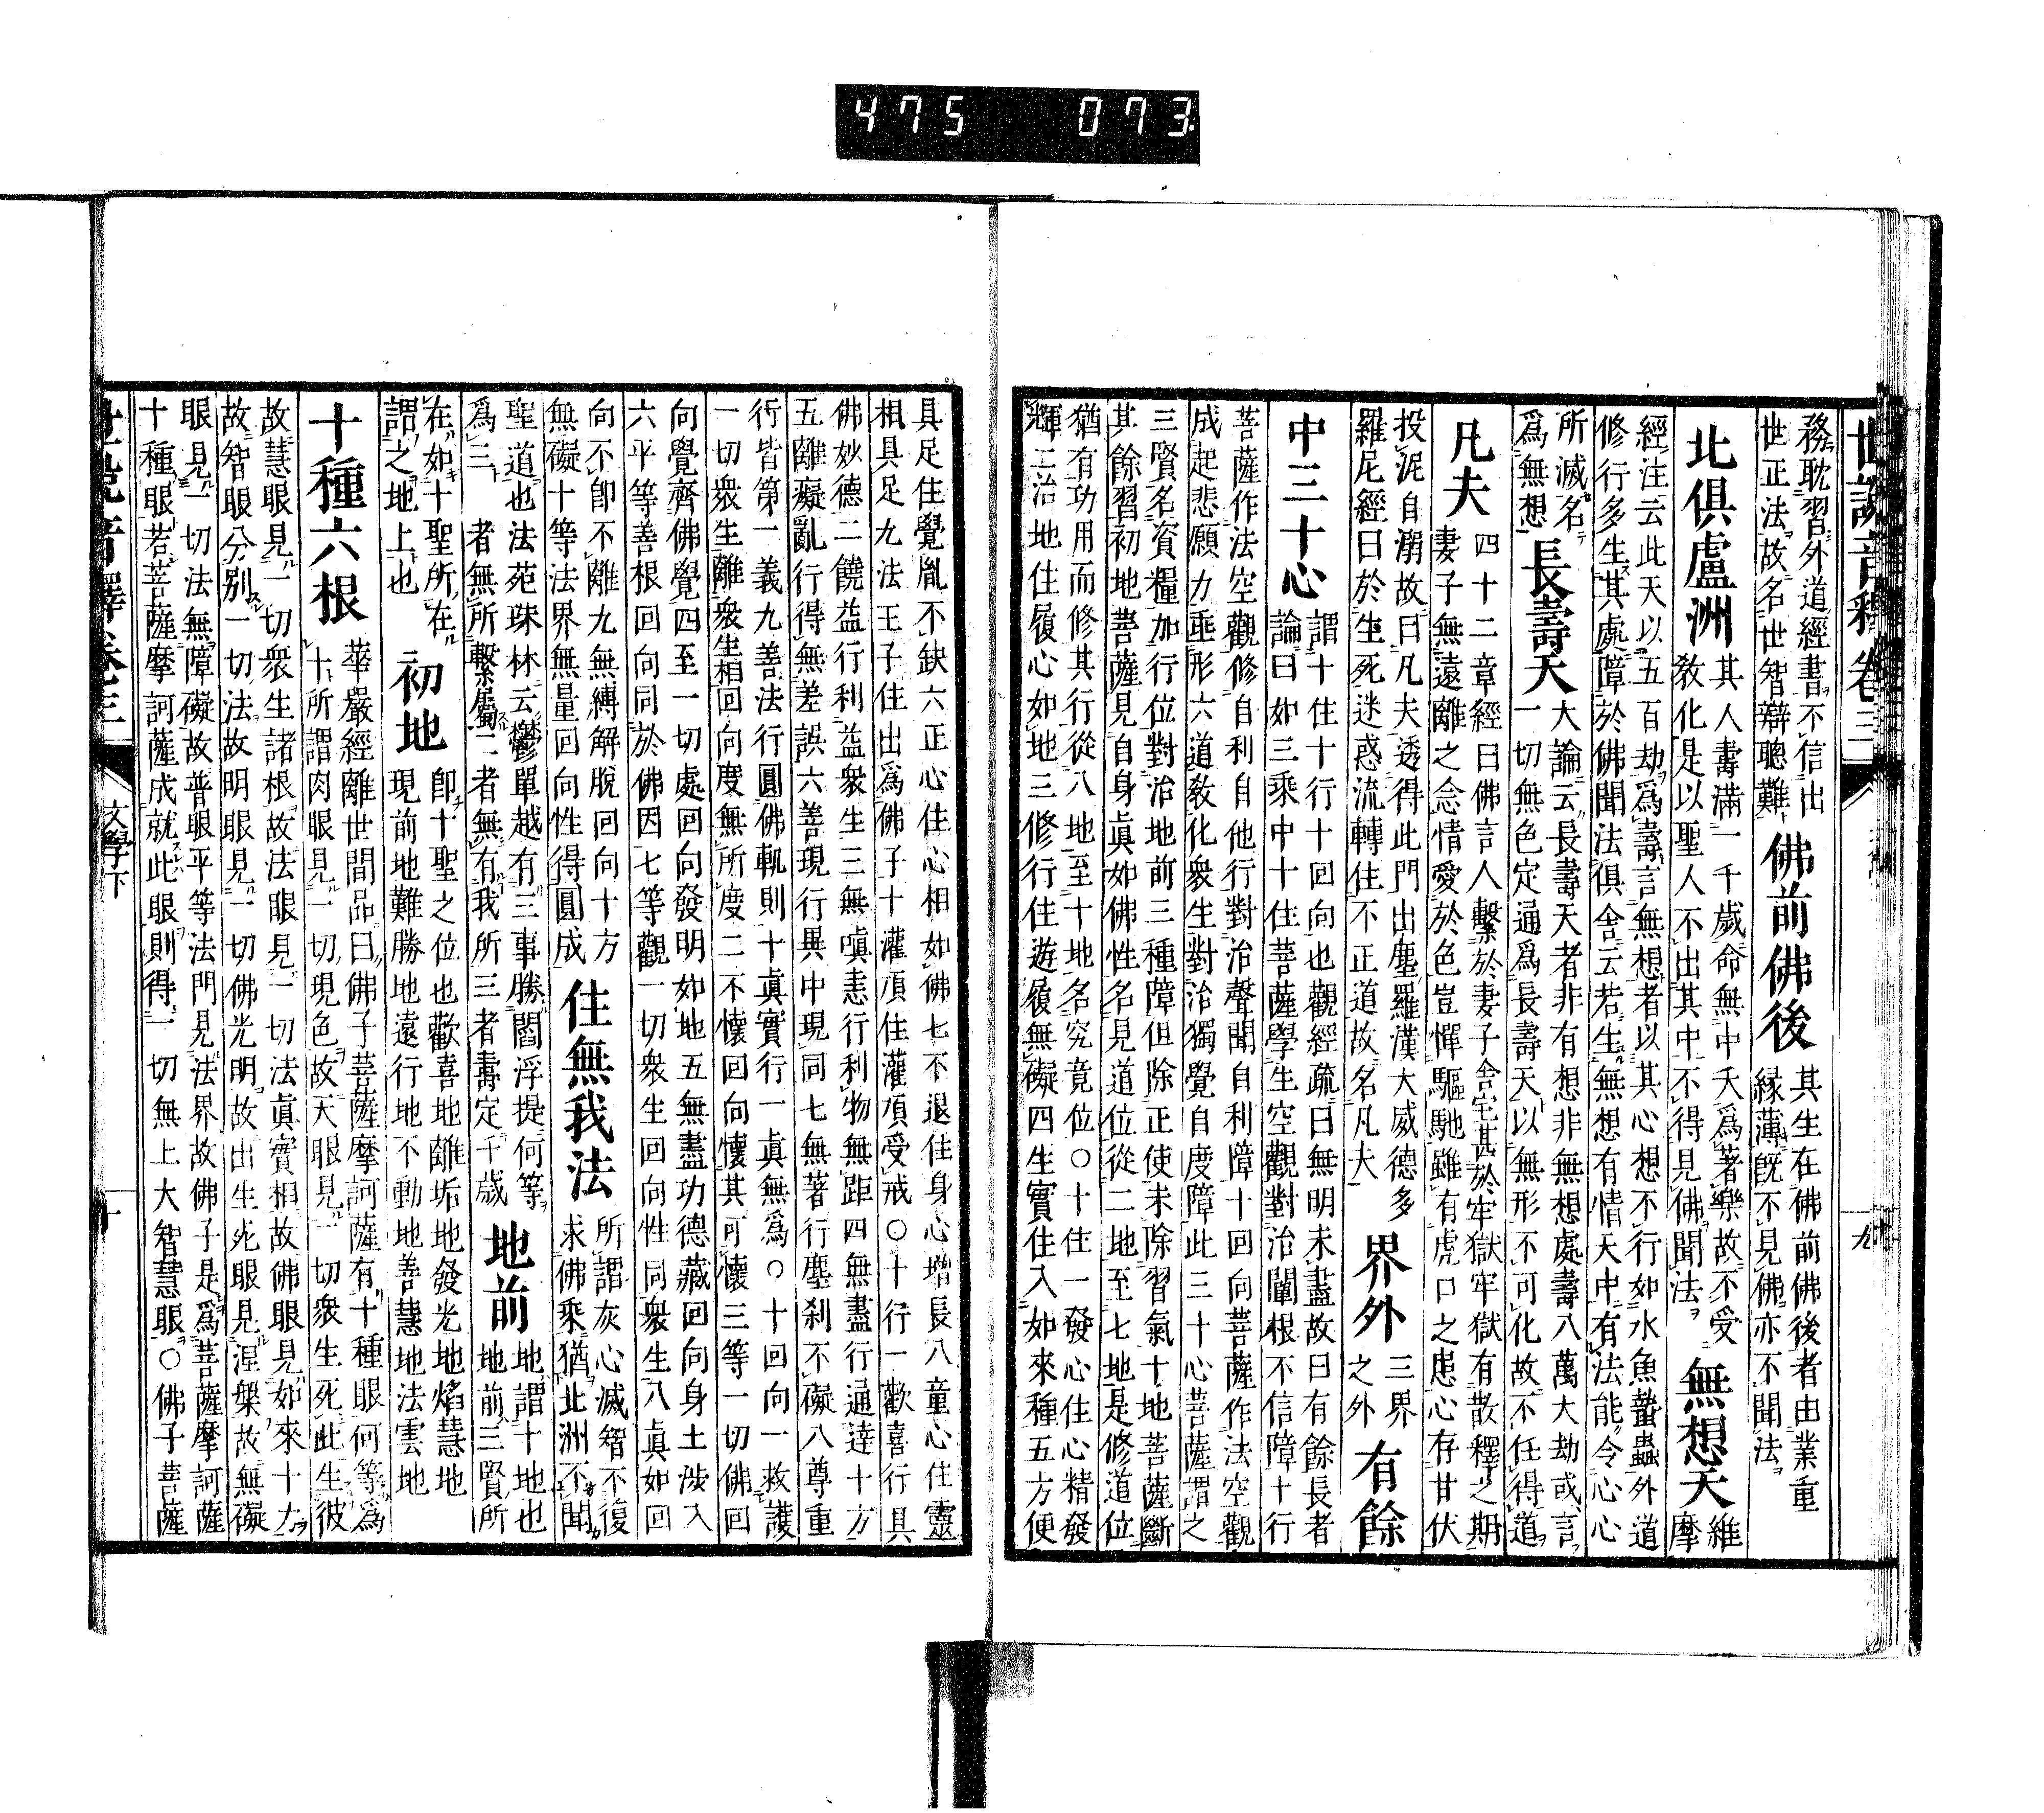 475 073
世說音釋卷三
九
務耽習外道經書不信出
世正法故名世智辯聰難
佛前佛後
其生在佛前佛後者由業重
緣薄既不見佛亦不聞法
北俱盧洲
其人壽滿一千歲命無中夭爲著樂故不受
敎化是以聖人不出其中不得見佛聞法
無想天
維
摩
經注云此天以五百劫爲壽言無想者以其心想不行如水魚蟄蟲外道
修行多生其處障於佛聞法俱舍云若生無想有情天中有法能令心心
所滅名
爲無想
長壽天
大論云長壽天者非有想非無想處壽八萬大劫或言
一切無色定通爲長壽天以無形不可化故不任得道
凡夫
四十二章經曰佛言人繫於妻子舍宅甚於牢獄牢獄有散釋之期
妻子無遠離之念情愛於色豈憚驅馳雖有虎口之患心存甘伏
投泥自溺故曰凡夫透得此門出塵羅漢大威德多
羅尼經曰於生死迷惑流轉住不正道故名凡夫
界外
三界
之外
有餘
中三十心
謂十住十行十回向也觀經疏曰無明未盡故曰有餘長者
論曰如三乘中十住菩薩學生空觀對治闡根不信障十行
菩薩作法空觀修自利自他行對治聲聞自利障十回向菩薩作法空觀
成起悲願力垂形六道敎化衆生對治獨覺自度障此三十心菩薩謂之
三賢名資糧加行位對治地前三種障但除正使未除習氣十地菩薩斷
其餘習初地菩薩見自身眞如佛性名見道位從二地至七地是修道位
猶有功用而修其行從八地至十地名究竟位○十住一發心住心精發
輝二治地住履心如地三修行住遊履無礙四生實住入如來種五方便
具足住覺胤不缺六正心住心相如佛七不退住身心增長八童心住靈
相具足九法王子住出爲佛子十灌頂住灌頂受戒○十行一歡喜行具
佛妙德二饒益行利益衆生三無嗔恚行利物無距四無盡行通達十方
五離癡亂行得無差誤六善現行異中現同七無著行塵刹不礙八尊重
行皆第一義九善法行圓佛軌則十眞實行一眞無爲○十回向一救護
一切衆生離衆生相回向度無所度二不懷回向懷其可懷三等一切佛回
向覺齊佛覺四至一切處回向發明如地五無盡功德藏回向身土涉入
六平等善根回向同於佛因七等觀一切衆生回向性同衆生八眞如回
向不卽不離九無縛解脫回向十方
無礙十等法界無量回向性得圓成
住無我法
所謂灰心滅智不復
求佛乘猶北洲不聞
聖道也法苑珠林云欝單越有三事勝閻浮提何等
爲三一者無所繫屬二者無有我所三者壽定千歲
地前
地謂十地也
地前三賢所
在如十聖所在
謂之地上也
初地
卽十聖之位也歡喜地離垢地發光地焰慧地
現前地難勝地遠行地不動地善慧地法雲地
十種六根
華嚴經離世間品曰佛子菩薩摩訶薩有十種眼何等爲
十所謂肉眼見一切現色故天眼見一切衆生死此生彼
故慧眼見一切衆生諸根故法眼見一切法眞實相故佛眼見如來十力
故智眼分别一切法故明眼見一切佛光明故出生死眼見涅槃故無礙
眼見一切法無障礙故普眼平等法門見法界故佛子是爲菩薩摩訶薩
十種眼若菩薩摩訶薩成就此眼則得一切無上大智慧眼○佛子菩薩
世說音釋卷三
文學下
十